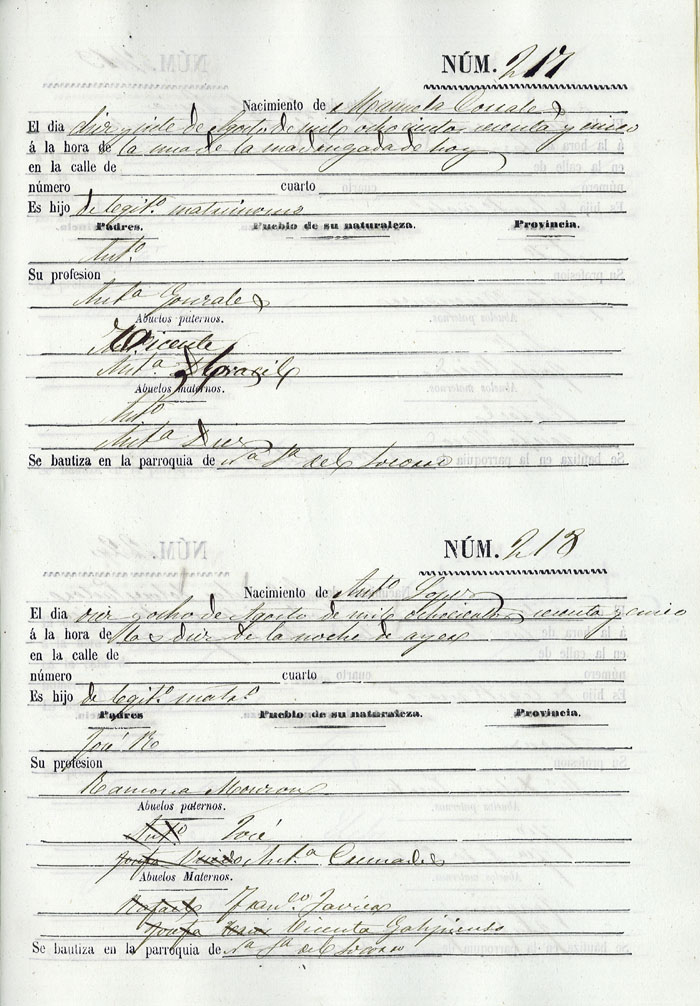 NÚM. 217
Nacimiento de Manuela
El dia diez y siete de Agosto de mil ochocientos y cinco
á la hora de la una de la madrugada de hoy
en la calle de
número cuarto
Es hijo de legit.o matrimonio
Padres. Pueblo de su naturaleza. Provincia.
Ant.o
Su profesion
Ant.a Gonzales
Abuelos paternos.
Vicente
Ant.a
Abuelos maternos.
Ant.o
Ant.a
Se bautiza en la parroquia de N.a S.a del Socorro
NÚM. 218
Nacimiento de Ant.o Lopez
El dia diez y ocho de Agosto de mil ochocientos y cinco
á la hora de las diez de la noche de ayer
en la calle de
número cuarto
Es hijo de legit.o mat.o
Padres Pueblo de su naturaleza. Provincia.
José
Su profesion
Ramona
Abuelos paternos.
Ant.o José
Josefa Ant.a
Abuelos Maternos.
Rafael Fran.co Javier
Josefa Vicenta
Se bautiza en la parroquia de N.a S.a del Socorro